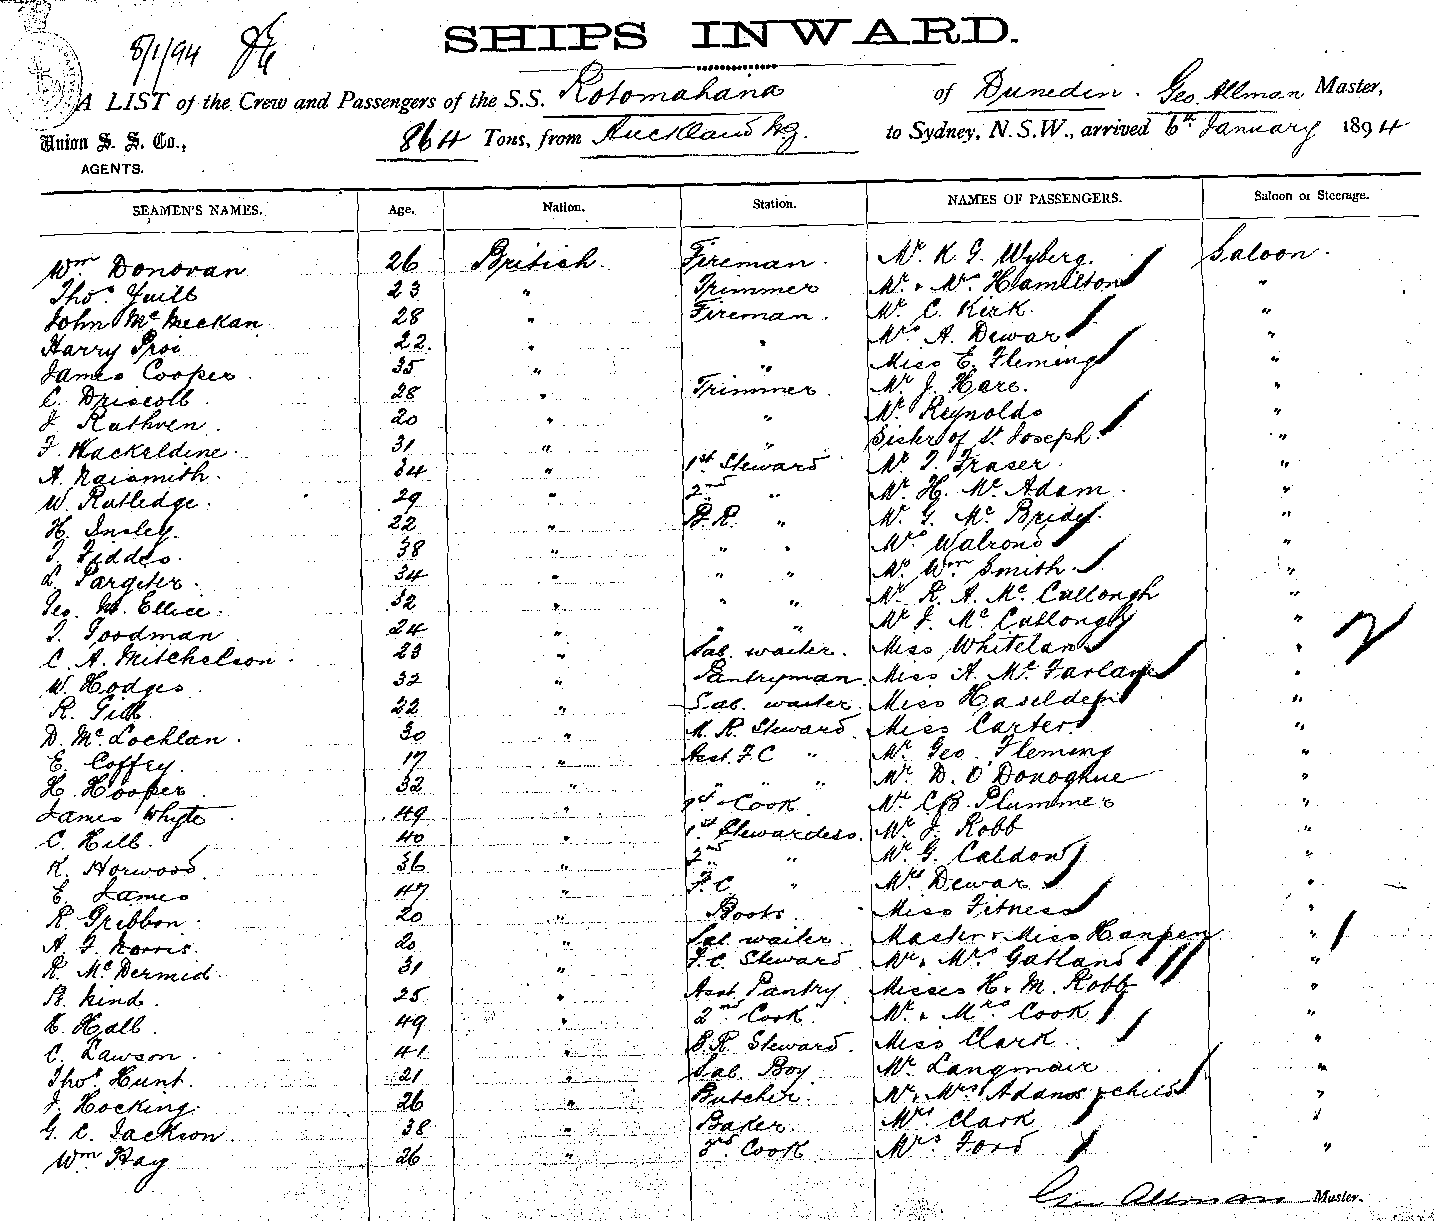 8/1/94
SHIPS INWARD.
A LIST of the Crew and Passengers of the S.S. Rotomahana of Dunedin. Geo. Allman Master,
Union S. S. Co., 864 Tons, from Auckland N.Z. to Sydney, N.S.W., arrived 6th January 1894
AGENTS.
SEAMEN'S NAMES. Age. Nation. Station. NAMES OF PASSENGERS. Saloon or Steerage.
Wm Donovan 26 British Fireman. Mr K. G. Wyberg. Saloon.
Thos. Yuill 23 " Trimmer Mr & Mrs Hamilton "
John McMeckan 28 " Fireman. Mr C. Kirk. "
Harry 22 " " Mrs A. Dewar "
James Cooper 35 " " Miss E. Fleming "
C. Driscoll 28 " Trimmer Mr J. Hare. "
J. Ruthven 20 " " Mr Reynolds "
F. Hackeldine 31 " " Sister of St. Joseph. "
A. Naismith 34 " 1st Steward Mr T. Fraser "
W. Rutledge 29 " 2nd " Mr H. McAdam "
H. Insley 22 " B.R. " Mr G. McBride "
T. Fiddes 38 " " " Mrs Walrond "
L. Pargiter 34 " " " Mr Wm Smith "
Geo. M. Ellice 32 " " " Mr R. A. McCullough "
T. Goodman 24 " " " Mr J. McCullough "
C. A. Mitchelson 23 " Sal. waiter. Miss Whitelaw "
W. Hodges 32 " Pantryman Miss A. McFarlane "
R. Gill 22 " Sal. waiter. Miss Haselden "
D. McLochlan 30 " M.R. Steward Miss Carter "
E. Coffey. 17 " Asst. F.C. " Mr Geo. Fleming "
H. Hooper 32 " " " " Mr D. O'Donoghue "
James Whyte 49 " 1st Cook Mr C. B. Plummer "
C. Hill 40 " 1st Stewardess. Mr J. Robb "
K. Horwood 36 " 2nd " Mr G. Caldow "
E. James 47 " F.C. " Mrs Dewar "
R. Gribbon 20 " Boots. Miss Fitness "
A. F. Norris 20 " Sal. waiter Master & Miss Hanpen "
R. McDermid. 31 " F.C. Steward Mr & Mrs Gatland "
B. Kind. 25 " Asst. Pantry Misses H. M. Robb "
H. Hall. 49 " 2nd Cook Mr & Mrs Cook "
C. Lawson 41 " B.R. Steward. Miss Clark "
Thos. Hunt. 21 " Sal. Boy Mr Langmair "
J. Hocking. 26 " Butcher. Mr Mrs Adams & child "
G. C. Jackson 38 " Baker. Mrs Clark "
Wm Hay 26 " 3rd Cook Mrs Ford "
Geo Allman Master.